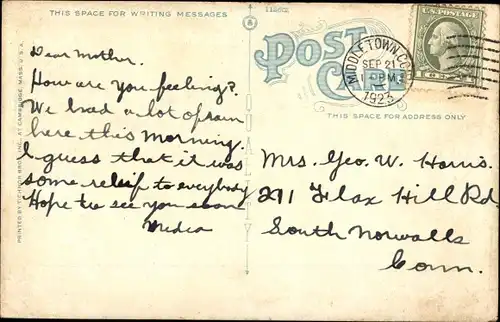 THIS SPACE FOR WRITING MESSAGES
POST CARD
MIDDLETOWN, CONN
SEP 21
1923
U.S. POSTAGE
THIS SPACE FOR ADDRESS ONLY
Dear Mother.
How are you feeling?
We had a lot of rain
here this morning.
I guess that it was
some relief to everybody
Hope to see you soon
Mrs. Geo. W. Harris.
Flax Hill Rd
South Norwalk
Conn.
PRINTED BY TICHNOR BROS. INC., AT CAMBRIDGE, MASS. U.S.A.
QUALITY